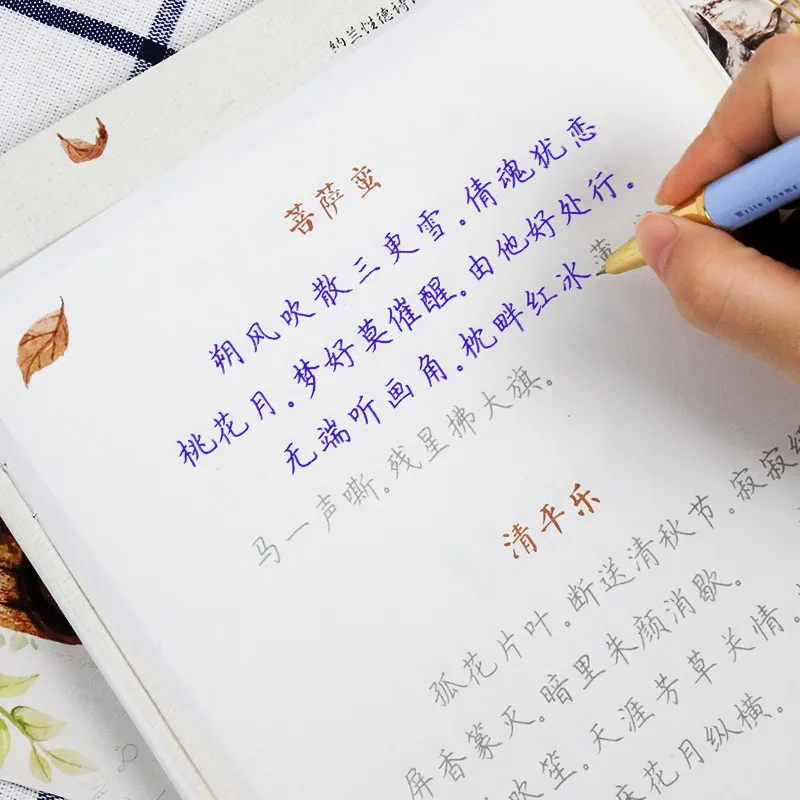 纳兰性德诗
菩萨蛮
朔风吹散三更雪。倩魂犹恋
桃花月。梦好莫催醒。由他好处行。
无端听画角。枕畔红冰薄
马一声嘶。残星拂大旗。
清平乐
孤花片叶。断送清秋节。寂寂绣
屏香篆灭。暗里朱颜消歇。
吹笙。天涯芳草关情。
花月纵横。
Write Poems